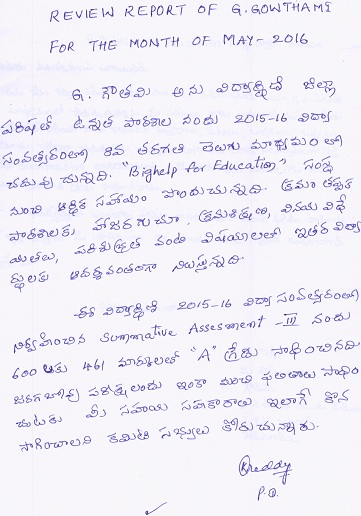 REVIEW REPORT OF G.GOWTHAMI
FOR THE MONTH OF MAY-2016
G. గౌతమి అను విద్యార్థిని జిల్లా
పరిషత్ ఉన్నత పాఠశాల నందు 2015-16 విద్యా
సంవత్సరంలో 8వ తరగతి తెలుగు మాధ్యమంలో
చదువుచున్నది. "Bighelp for Education" సంస్థ
నుంచి ఆర్థిక సహాయం పొందుచున్నది. క్రమం తప్పక
పాఠశాలకు హాజరగుచూ, క్రమశిక్షణ, వినయ విధే
యతలు, పరిశుభ్రత వంటి విషయాలలో ఇతర విద్యా
ర్థులకు ఆదర్శవంతంగా నిలుస్తున్నది.
ఈ విద్యార్థిని 2015-16 విద్యా సంవత్సరంలో
నిర్వహించిన Summative Assesment -III నందు
600 లకు 461 మార్కులతో "A" గ్రేడు సాధించినది
జరగబోవు పరీక్షలందు ఇంకా మంచి ఫలితాలు సాధిం
చుటకు మీ సహాయ సహకారాలు ఇలాగే కొన
సాగించాలని కమిటి సభ్యులు కోరుచున్నారు.
Reddy
P.O.